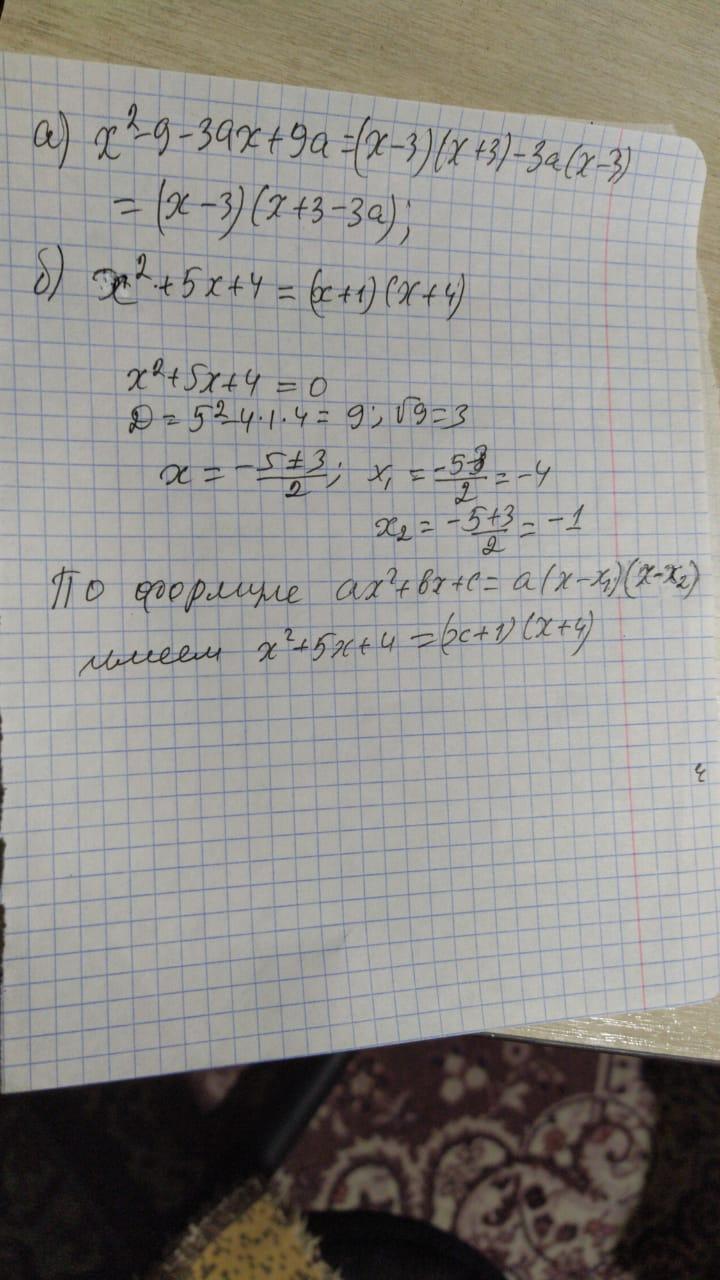 а) x²-9-3ax+9a=(x-3)(x+3)-3a(x-3)
=(x-3)(x+3-3a);
б) x²+5x+4=(x+1)(x+4)
x²+5x+4=0
D=5²-4·1·4=9; √9=3
x=-5±3/2; x₁=-5-3/2=-4
x₂=-5+3/2=-1
По формуле ax²+bx+c=a(x-x₁)(x-x₂)
имеем x²+5x+4=(x+1)(x+4)
ч